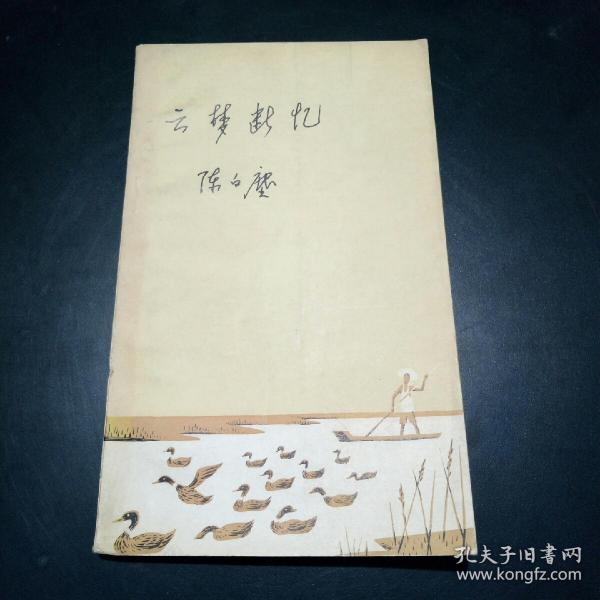 云梦断忆
陈白尘
孔夫子旧書网
www.kongfz.com